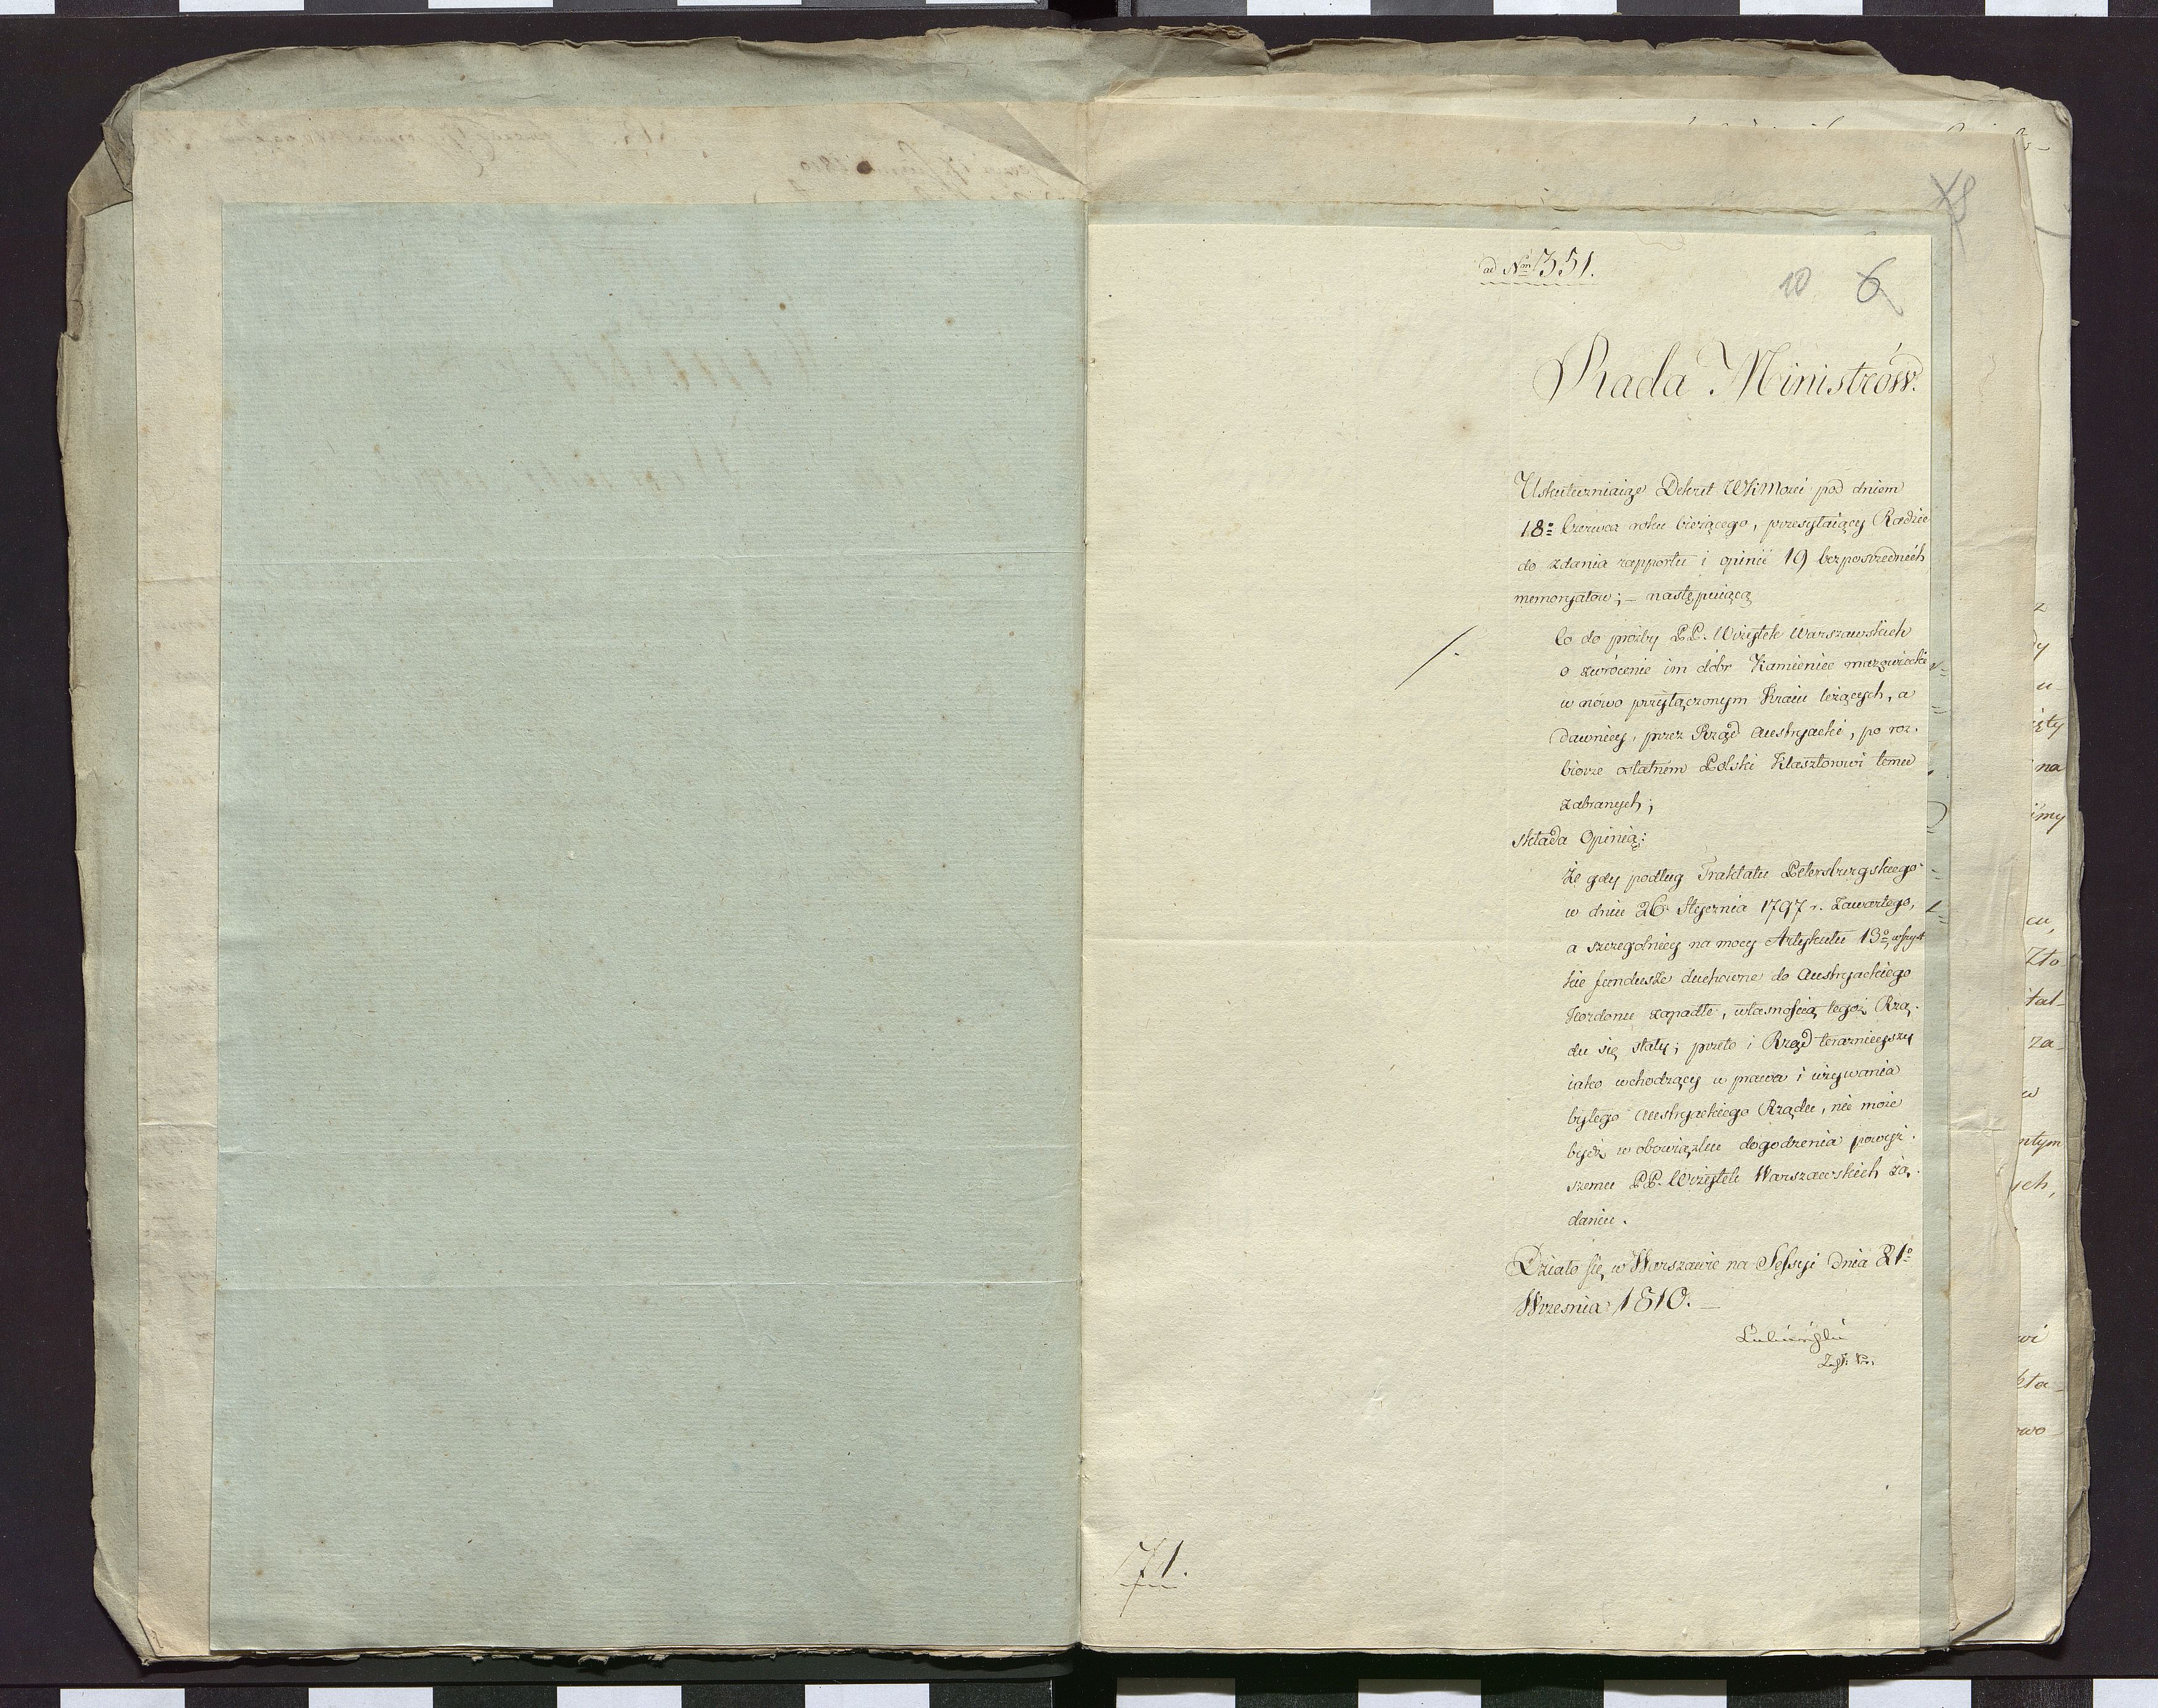 ad Nrm 351.
10 6
Rada Ministrów.
Uskuteczniaiąc Dekret WKMości pod dniem
18º Czerwca roku bieżącego, przesyłaiący Radzie
do zdania rapportu i opinii 19 bezposrzednich
memoryałów; – następuiącą
Co do prośby PP. Wizytek Warszawskich
o zwrócenie im dóbr Kamieniec mazowiecki
w nowo przyłączonym Kraiu leżących, a
dawniey, przez Rząd Austryacki, po roz-
biorze ostatnem Polski Klasztorowi temu
zabranych;
składa Opinią:
Że gdy podług Traktatu Petersburgskiego
w dniu 26. Stycznia 1797 r. Zawartego,
a szczegolniey na mocy Artykułu 13º, wszyst
kie fundusze duchowne do Austryackiego
Kordonu zapadłe, własnością tegoż Rzą-
du się stały; przeto i Rząd teraznieyszy
iako wchodzący w prawa i używania
byłego Austryackiego Rządu, nie może
bydź w obowiązku dogodzenia powyż-
szemu PP. Wizytek Warszawskich żą-
daniu.
Działo się w Warszawie na Sessyi dnia 21º
Wrzesnia 1810. –
Lubieński
Zast: Pre:
71.